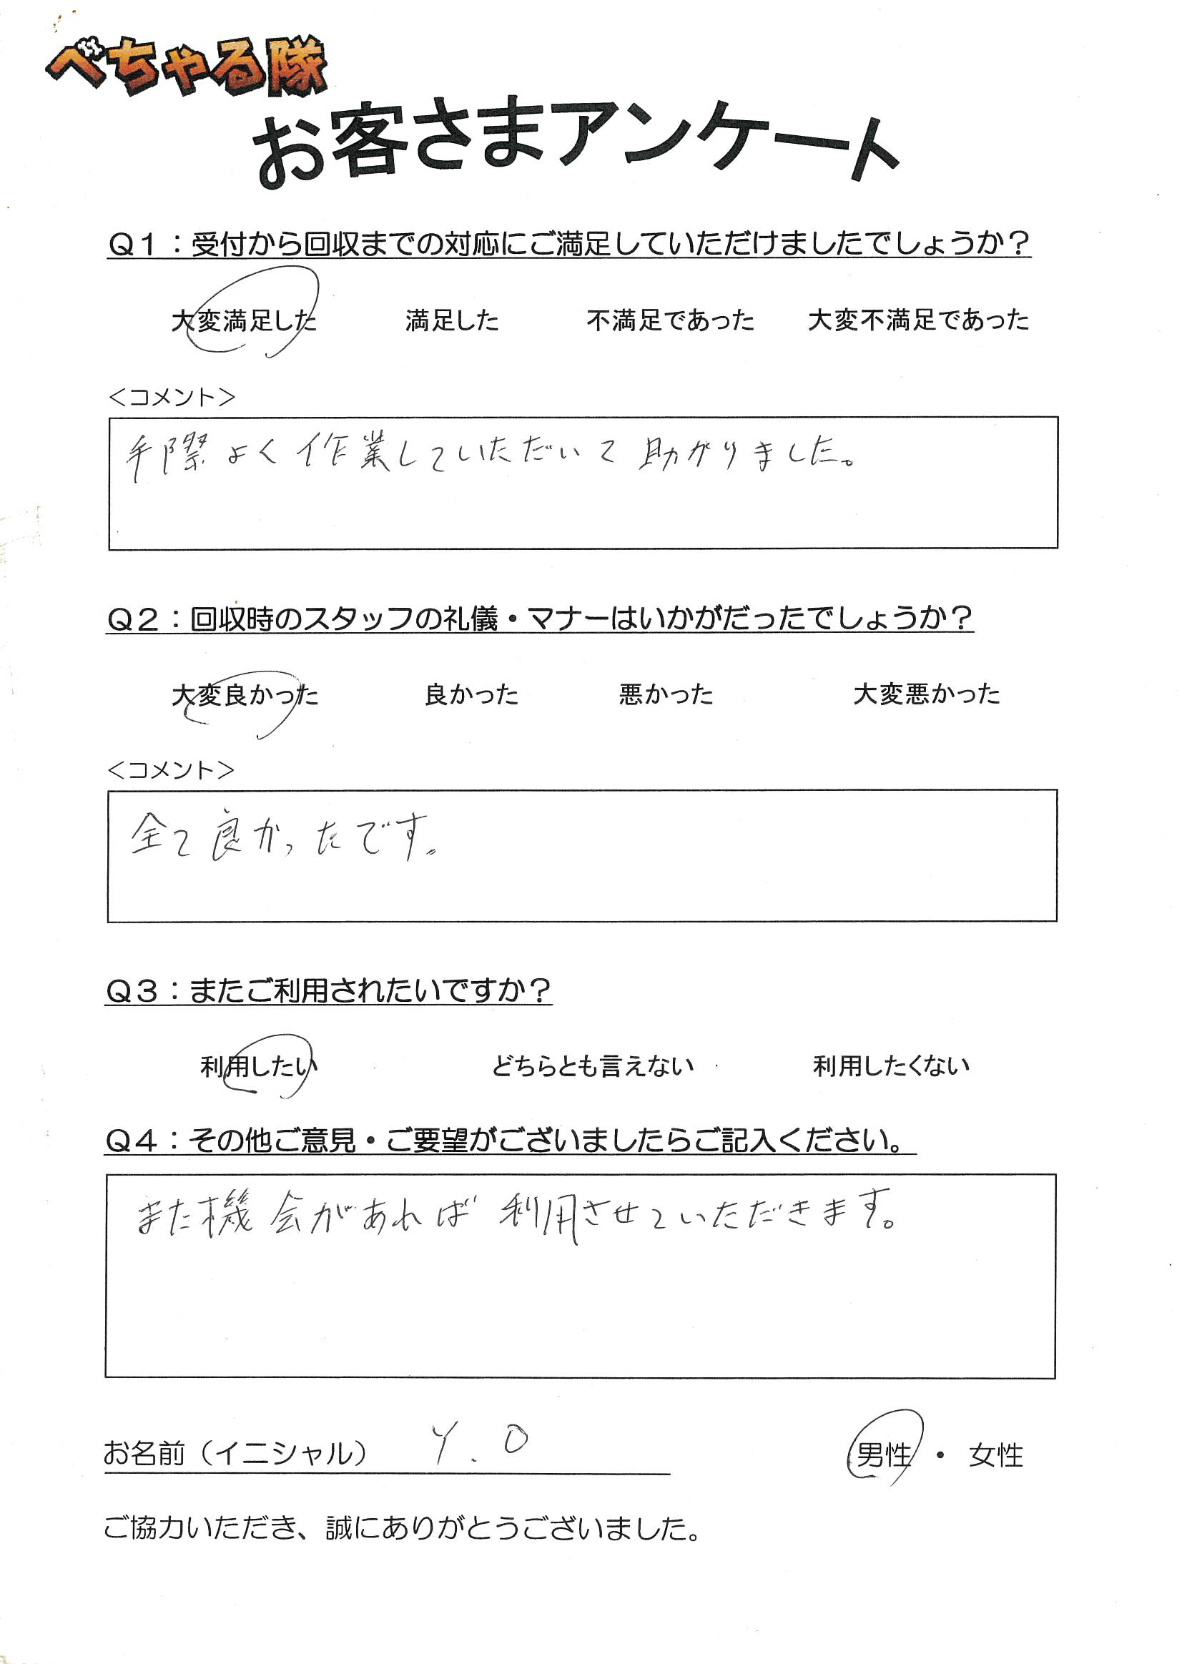 べちゃる隊
お客さまアンケート
Q1：受付から回収までの対応にご満足していただけましたでしょうか？
大変満足した 満足した 不満足であった 大変不満足であった
＜コメント＞
手際よく作業していただいて助かりました。
Q2：回収時のスタッフの礼儀・マナーはいかがだったでしょうか？
大変良かった 良かった 悪かった 大変悪かった
＜コメント＞
全て良かったです。
Q3：またご利用されたいですか？
利用したい どちらとも言えない 利用したくない
Q4：その他ご意見・ご要望がございましたらご記入ください。
また機会があれば利用させていただきます。
お名前（イニシャル） Y.O 男性 ・ 女性
ご協力いただき、誠にありがとうございました。